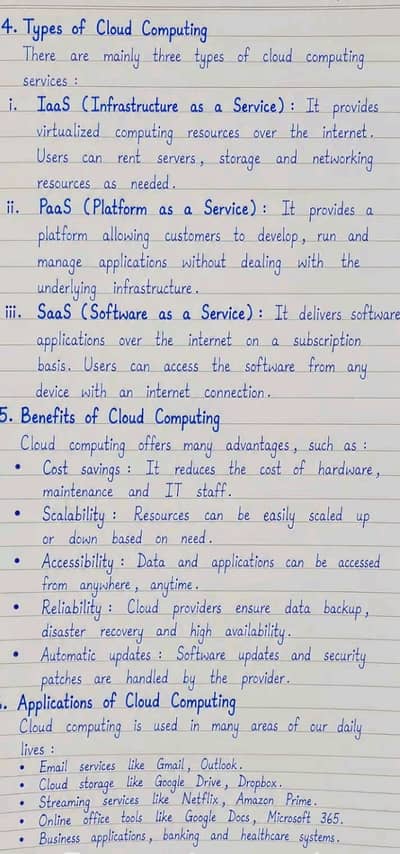 4. Types of Cloud Computing
There are mainly three types of cloud computing
services :
i. IaaS (Infrastructure as a Service) : It provides
virtualized computing resources over the internet.
Users can rent servers, storage and networking
resources as needed.
ii. PaaS (Platform as a Service) : It provides a
platform allowing customers to develop, run and
manage applications without dealing with the
underlying infrastructure.
iii. SaaS (Software as a Service) : It delivers software
applications over the internet on a subscription
basis. Users can access the software from any
device with an internet connection.
5. Benefits of Cloud Computing
Cloud computing offers many advantages, such as :
• Cost savings : It reduces the cost of hardware,
maintenance and IT staff.
• Scalability : Resources can be easily scaled up
or down based on need.
• Accessibility : Data and applications can be accessed
from anywhere, anytime.
• Reliability : Cloud providers ensure data backup,
disaster recovery and high availability.
• Automatic updates : Software updates and security
patches are handled by the provider.
. Applications of Cloud Computing
Cloud computing is used in many areas of our daily
lives :
• Email services like Gmail, Outlook.
• Cloud storage like Google Drive, Dropbox.
• Streaming services like Netflix, Amazon Prime.
• Online office tools like Google Docs, Microsoft 365.
• Business applications, banking and healthcare systems.